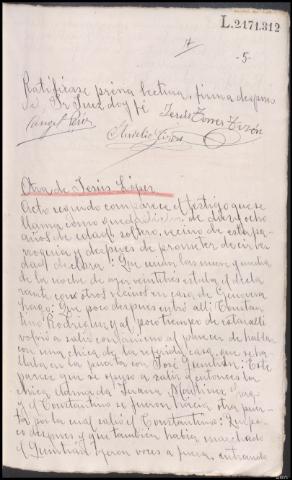 L.2171.312
-5-
Ratifícase previa lectura, firma despues
de Sr Juez doy fé Jesús Torres Tizón
Angel Pérez
Aurelio
Otra de Jesús López
Acto seguido comparece el testigo que se
llama como queda dicho de dieciocho
años de edad soltero, vecino de esta pa-
rroquia y despues de prometer decir ver-
dad declara: Que
de la noche de ayer veintitrés estaba el decla-
rante con otros vecinos en casa de Genoveva
Que poco despues entró allí Constan-
tino Rodríguez y al poco tiempo de estar allí
volvió a salir con ánimo al parecer de hablar
con una chica de la referida casa, que se ha-
llaba en la puerta con José Quintián: Este
parece que se opuso a salir y entonces la
chica llamada Juana Martínez
y el Constantino se fueron hacia otra puer-
ta por la cual salió el Constantino: Un po-
co despues y que también había marchado
el Quintián oyeron voces a fuera, entrando